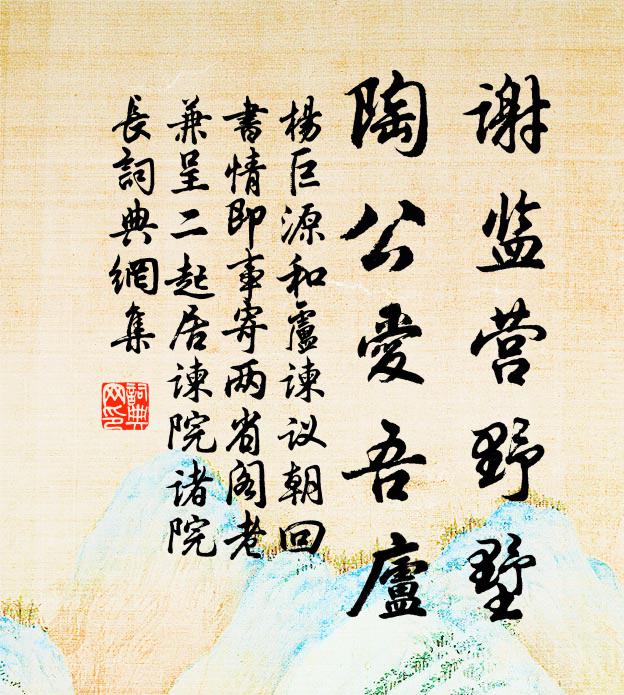 谢监营野墅
陶公愛吾廬
楊巨源和盧谏议朝回
書情即事寄两省阁老
兼呈二起居谏院诸院
長詞典網集
詞典
网印